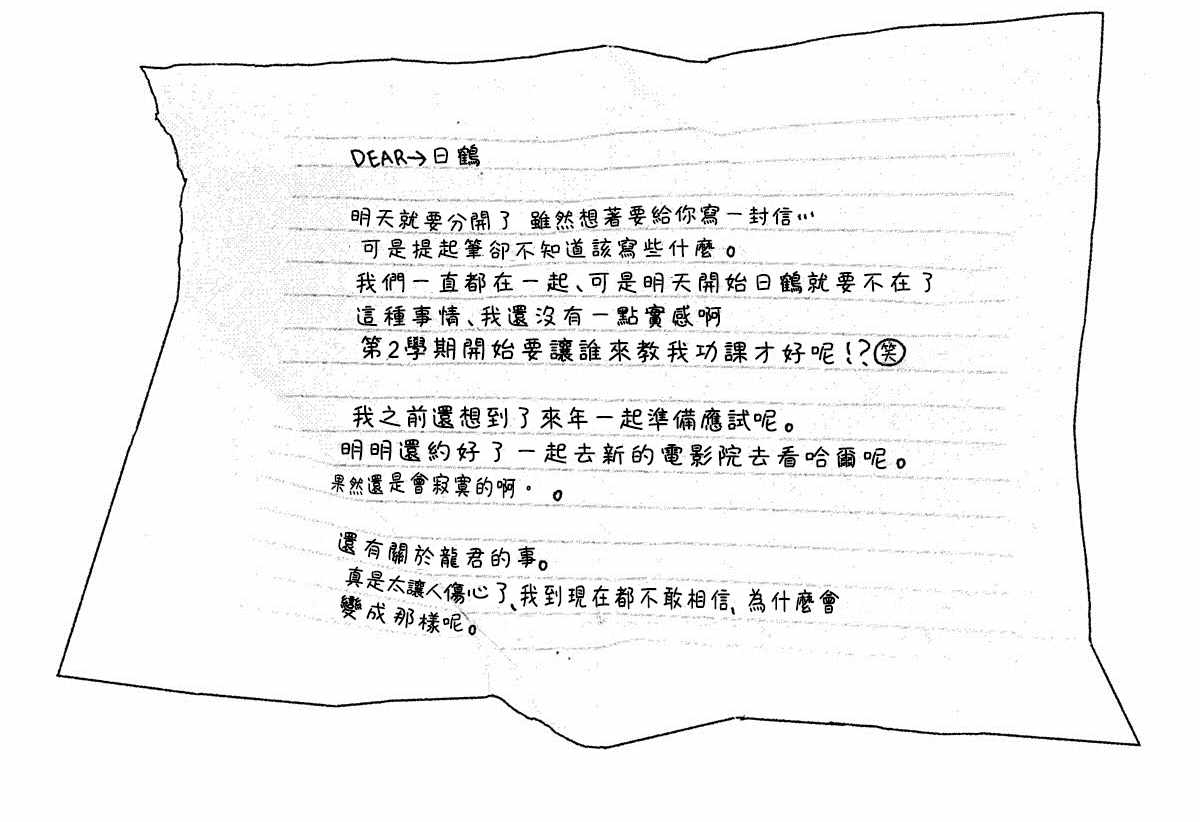 DEAR→日鶴
明天就要分開了 雖然想著要給你寫一封信…
可是提起筆卻不知道該寫些什麼。
我們一直都在一起、可是明天開始日鶴就要不在了
這種事情、我還沒有一點實感啊
第2學期開始要讓誰來教我功課才好呢!?㊥笑
我之前還想到了來年一起準備應試呢。
明明還約好了一起去新的電影院去看哈爾呢。
果然還是會寂寞的啊。。
還有關於龍君的事。
真是太讓人傷心了、我到現在都不敢相信、為什麼會
變成那樣呢。